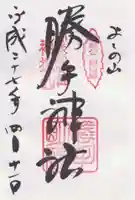 よしの山
勝手神社
平成二十七年四月十一日